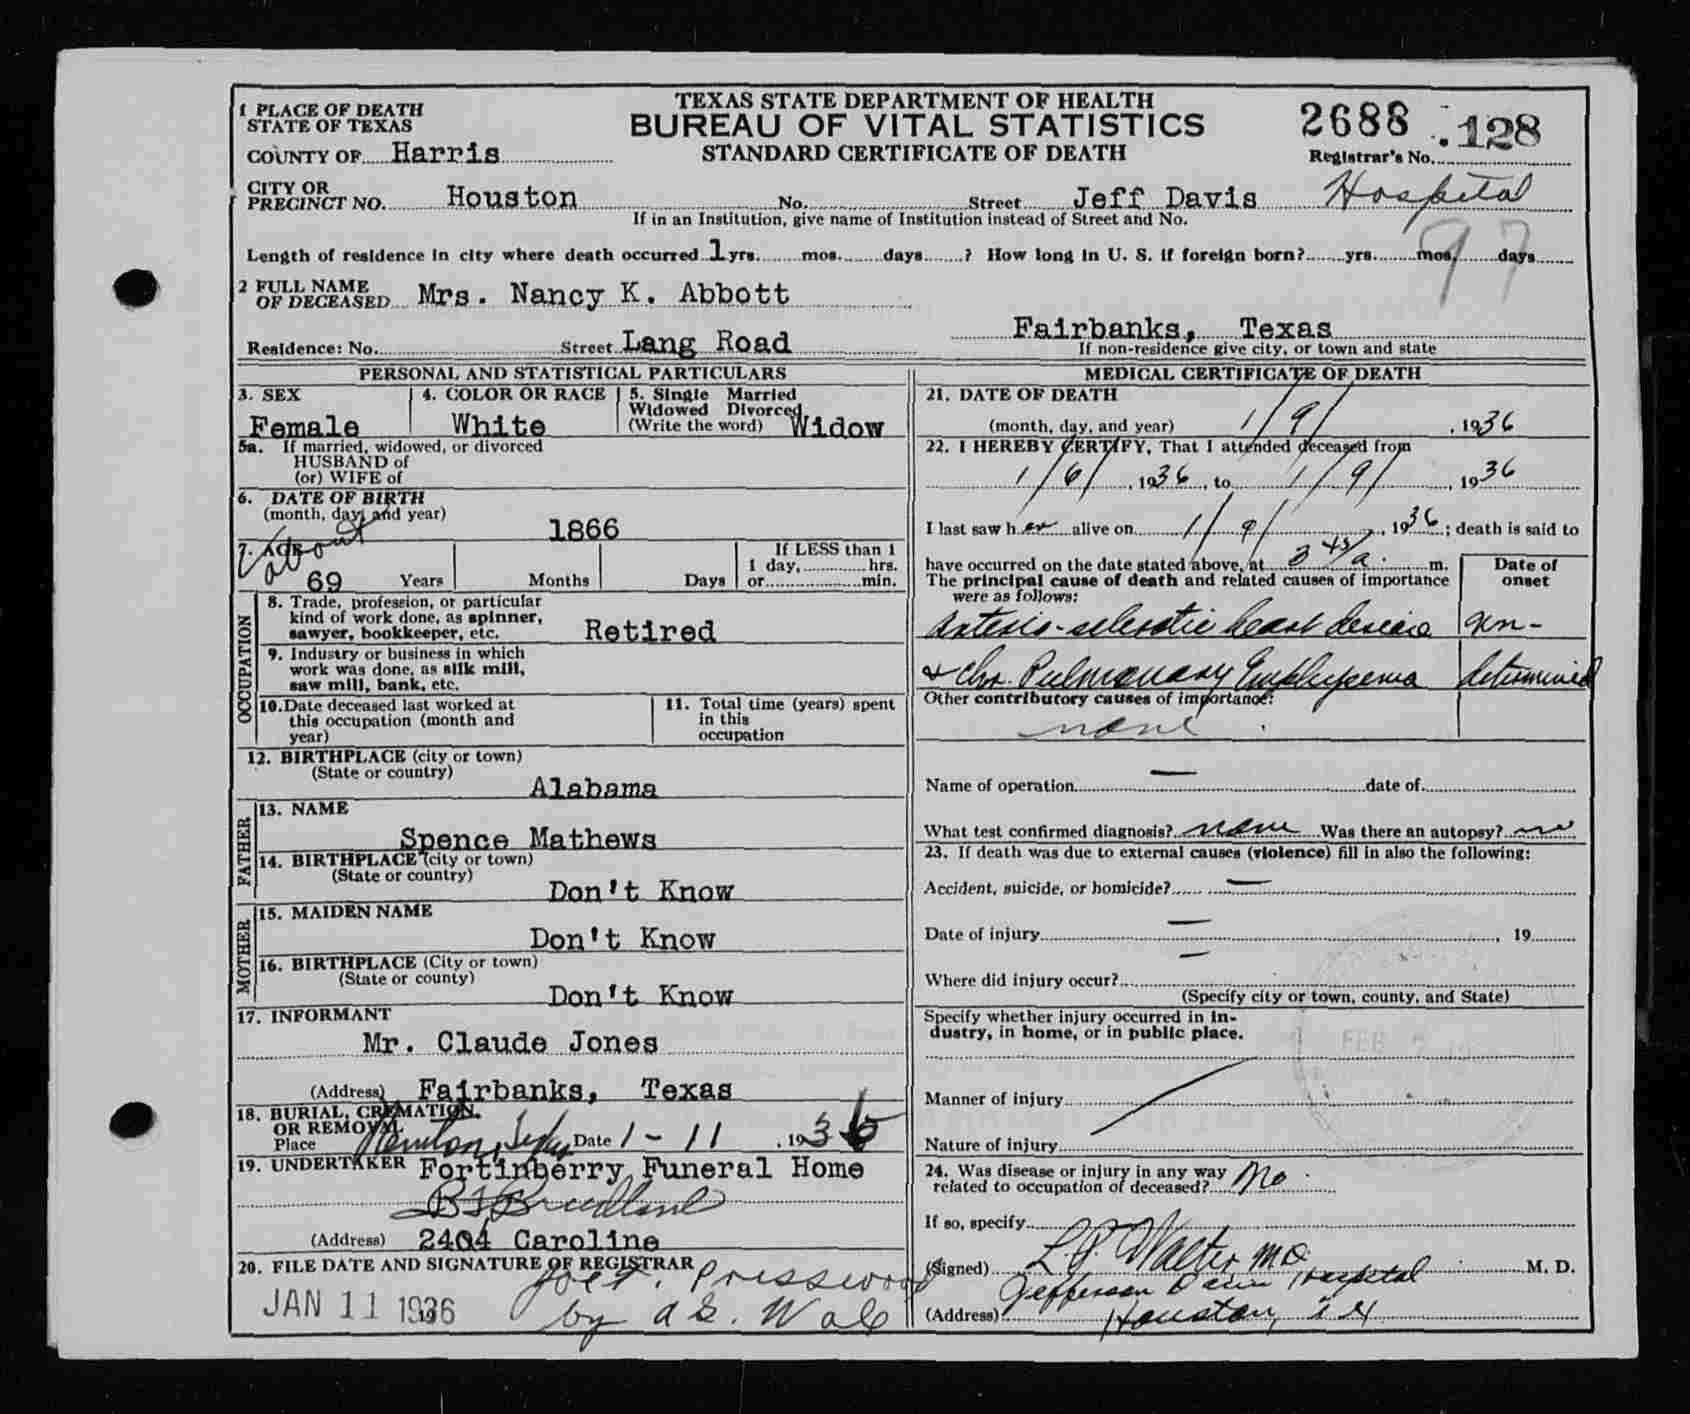 TEXAS STATE DEPARTMENT OF HEALTH
BUREAU OF VITAL STATISTICS
STANDARD CERTIFICATE OF DEATH
2688 .128
Registrar's No.
1 PLACE OF DEATH
STATE OF TEXAS
COUNTY OF Harris
CITY OR PRECINCT NO. Houston No. Street Jeff Davis Hospital
If in an Institution, give name of Institution instead of Street and No.
97
Length of residence in city where death occurred 1 yrs. mos. days ? How long in U. S. if foreign born? yrs. mos. days
2 FULL NAME OF DECEASED Mrs. Nancy K. Abbott
Residence: No. Street Lang Road Fairbanks, Texas
If non-residence give city, or town and state
PERSONAL AND STATISTICAL PARTICULARS
3. SEX Female
4. COLOR OR RACE White
5. Single Married Widowed Divorced (Write the word) Widow
5a. If married, widowed, or divorced
HUSBAND of
(or) WIFE of
6. DATE OF BIRTH
(month, day, and year) 1866
7. AGE about 69 Years Months Days If LESS than 1
1 day, hrs.
or min.
OCCUPATION
8. Trade, profession, or particular
kind of work done, as spinner,
sawyer, bookkeeper, etc. Retired
9. Industry or business in which
work was done, as silk mill,
saw mill, bank, etc.
10. Date deceased last worked at
this occupation (month and
year)
11. Total time (years) spent
in this
occupation
12. BIRTHPLACE (city or town)
(State or country) Alabama
FATHER
13. NAME
Spence Mathews
14. BIRTHPLACE (city or town)
(State or country) Don't Know
MOTHER
15. MAIDEN NAME
Don't Know
16. BIRTHPLACE (City or town)
(State or county) Don't Know
17. INFORMANT
Mr. Claude Jones
(Address) Fairbanks, Texas
18. BURIAL, CREMATION,
OR REMOVAL
Place Date 1 - 11 , 1936
19. UNDERTAKER Fortinberry Funeral Home
(Address) 2404 Caroline
20. FILE DATE AND SIGNATURE OF REGISTRAR
JAN 11 1936 Presswood
by
MEDICAL CERTIFICATE OF DEATH
21. DATE OF DEATH
(month, day, and year) 1/9/ , 1936
22. I HEREBY CERTIFY, That I attended deceased from
1/6/ , 1936, to 1/9/ , 1936
I last saw her alive on 1/9/ , 1936; death is said to
have occurred on the date stated above, at 3 45/a. m.
The principal cause of death and related causes of importance
were as follows:
Date of onset
Arterio-sclerotic heart disease un-
& Chr. Pulmonary Emphysema determined
Other contributory causes of importance:
none
Name of operation — date of
What test confirmed diagnosis? none Was there an autopsy? no
23. If death was due to external causes (violence) fill in also the following:
Accident, suicide, or homicide? —
Date of injury — , 19
Where did injury occur? —
(Specify city or town, county, and State)
Specify whether injury occurred in in-
dustry, in home, or in public place.
FEB 7
Manner of injury
Nature of injury
24. Was disease or injury in any way
related to occupation of deceased? No
If so, specify
(Signed) L. P. Walter MD M. D.
(Address) Jefferson Davis Hospital
Houston, Tex